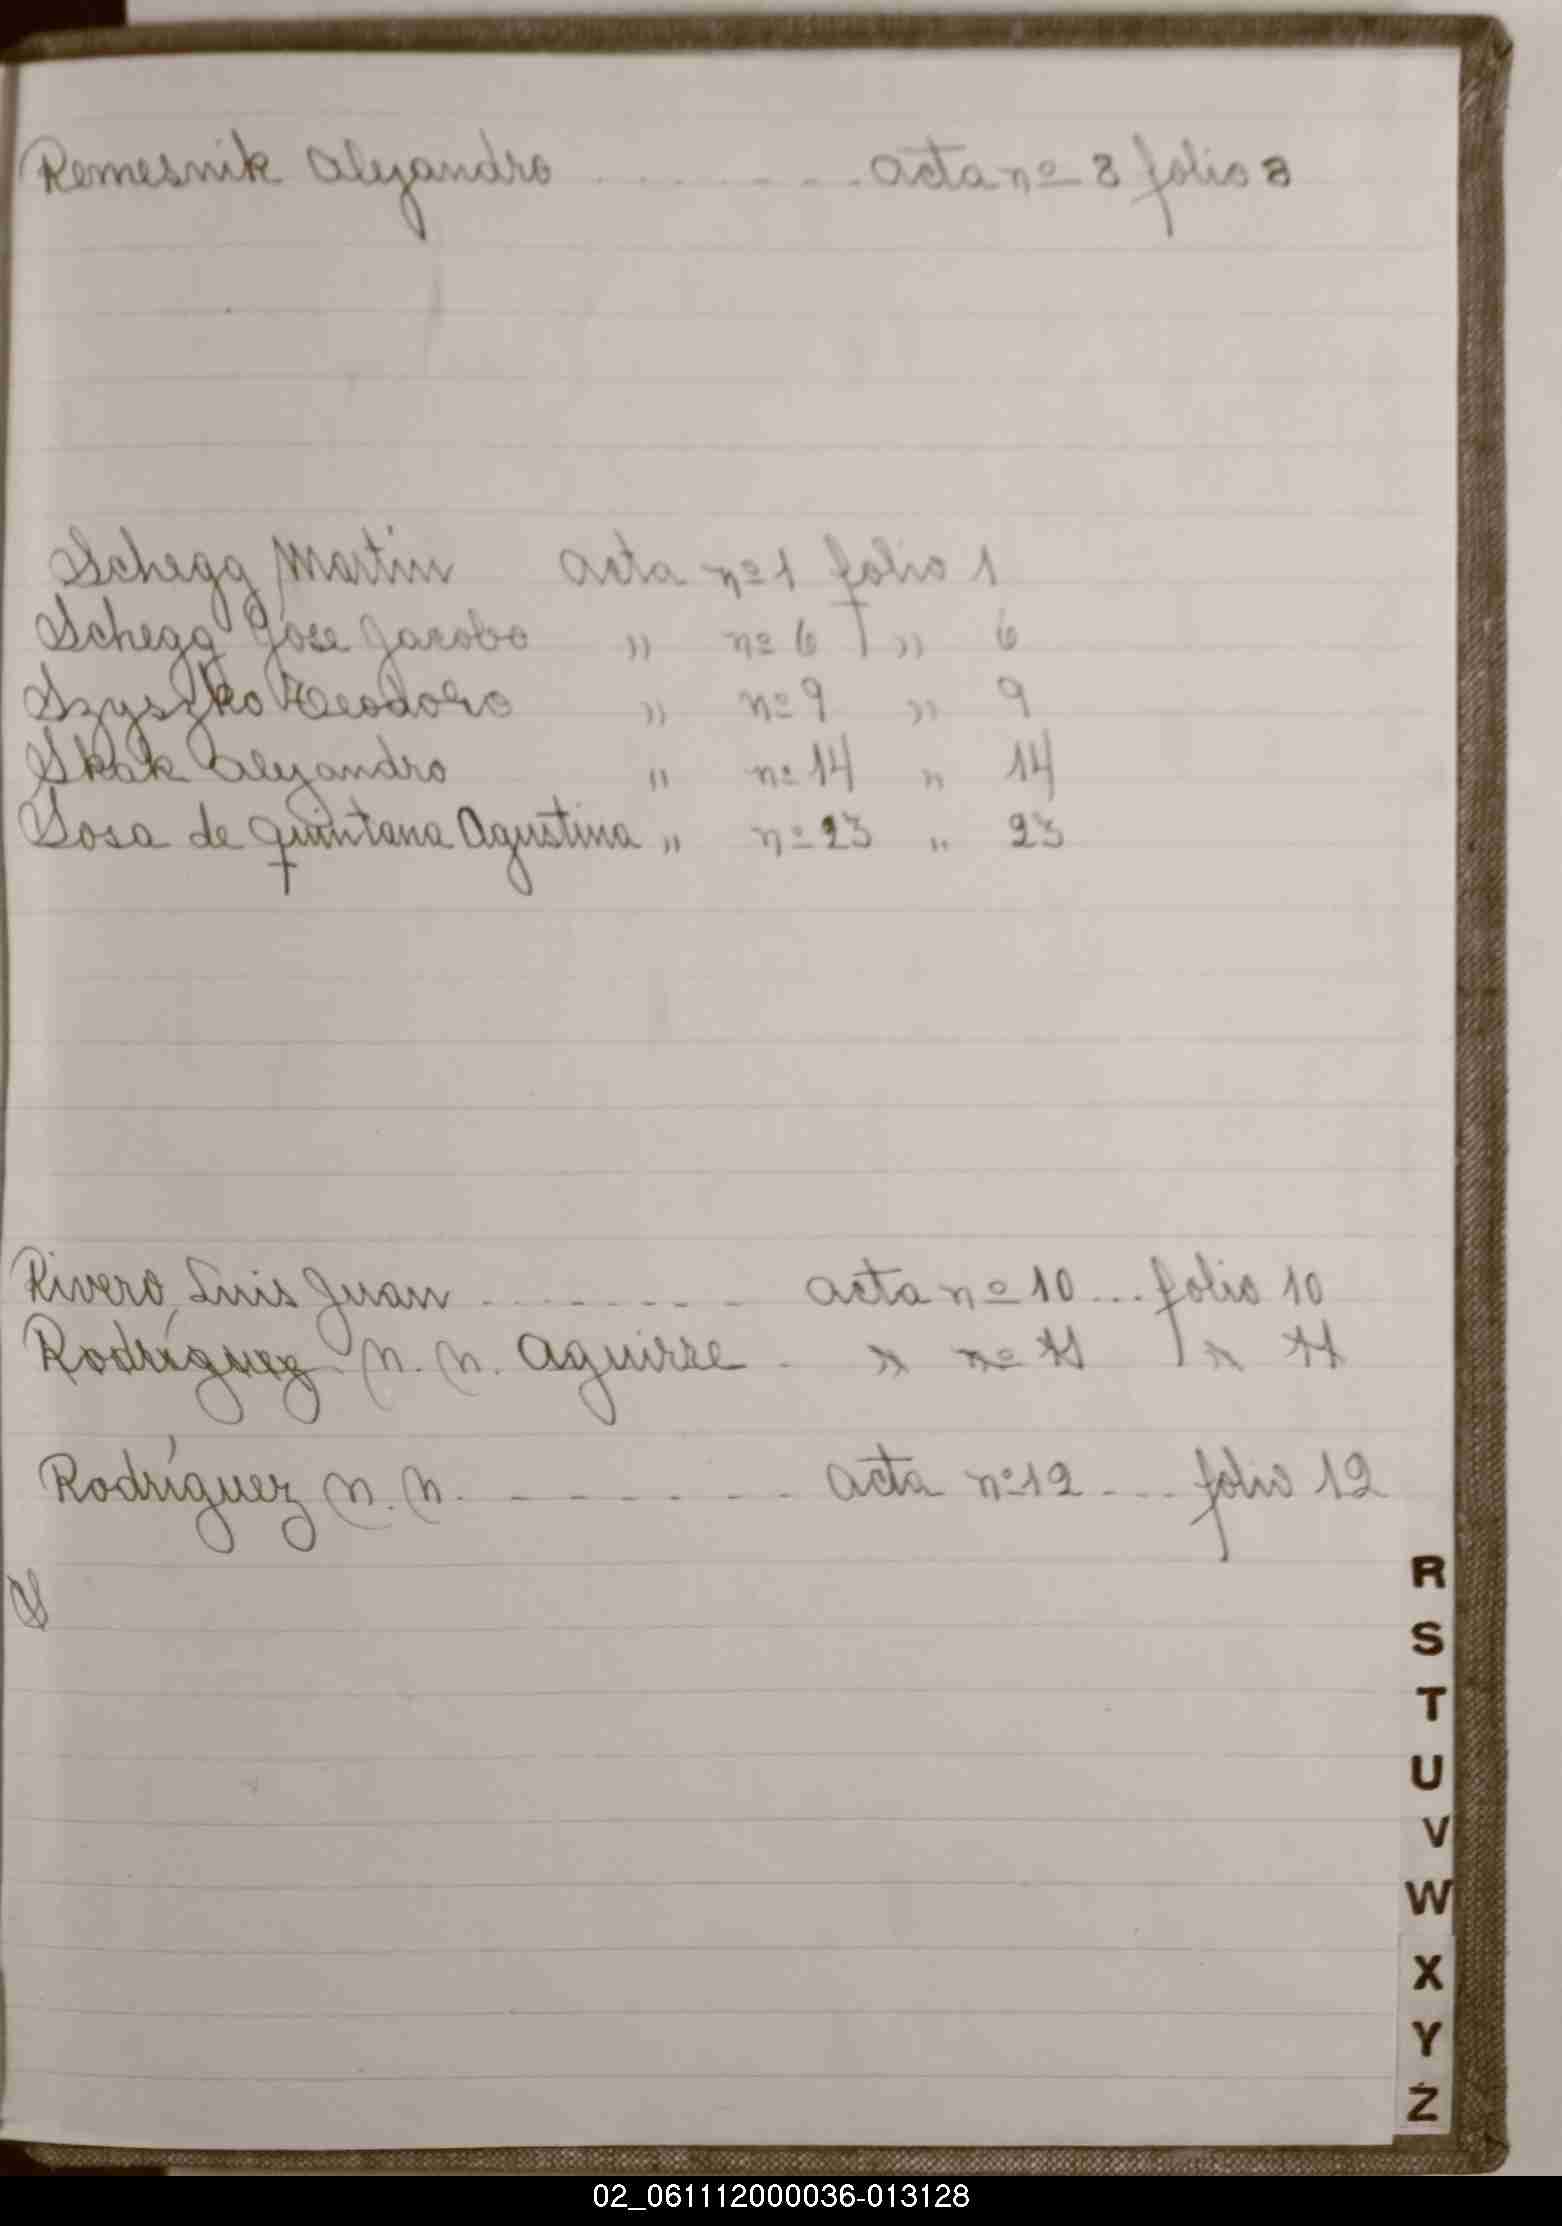 Remesnik Alejandro ........ acta nº 8 folio 8
Schegg Martin acta nº 1 folio 1
Schegg Jose Jacobo " nº 6 " 6
Szyszko Teodoro " nº 9 " 9
Skak Alejandro " nº 14 " 14
Sosa de Quintana Agustina " nº 23 " 23
Rivero, Luis Juan ........ acta nº 10 ... folio 10
Rodríguez N. N. Aguirre . " nº 11 " 11
Rodríguez N. N. ........ acta nº 12 .... folio 12
S
R
S
T
U
V
W
X
Y
Z
02_061112000036-013128